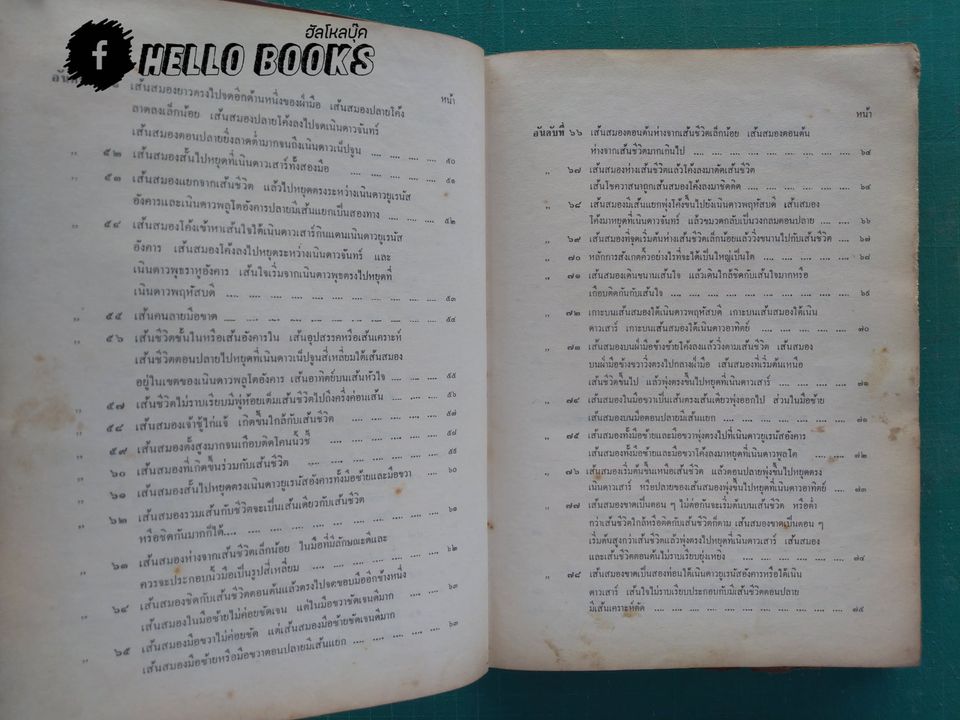 ฮัลโหลบุ๊ค
f HELLO BOOKS
หน้า
เส้นสมองยาวตรงไปจดอีกด้านหนึ่งของฝ่ามือ เส้นสมองปลายโค้ง
ลาดลงเล็กน้อย เส้นสมองปลายโค้งลงไปจดเนินดาวจันทร์
เส้นสมองตอนปลายยิ่งลาดต่ำมากจนถึงเนินดาวเน็ปจูน .... .... .... .... ๕๐
,, ๕๒ เส้นสมองสั้นไปหยุดที่เนินดาวเสาร์ทั้งสองมือ .... .... .... .... ๕๑
,, ๕๓ เส้นสมองแยกจากเส้นชีวิต แล้วไปหยุดตรงระหว่างเนินดาวยูเรนัส
อังคารและเนินดาวพลูโตอังคารปลายมีเส้นแยกเป็นสองทาง .... .... .... ๕๒
,, ๕๔ เส้นสมองโค้งเข้าหาเส้นใจใต้เนินดาวเสาร์กินแดนเนินดาวยูเรนัส
อังคาร เส้นสมองโค้งลงไปหยุดระหว่างเนินดาวจันทร์ และ
เนินดาวพุธราหูอังคาร เส้นใจเริ่มจากเนินดาวพุธตรงไปหยุดที่
เนินดาวพฤหัสบดี .... .... .... .... .... .... .... .... .... .... ๕๓
,, ๕๕ เส้นคนลายมือขาด .... .... .... .... .... .... .... .... .... .... ๕๔
,, ๕๖ เส้นชีวิตชั้นในหรือเส้นอังคารใน เส้นอุปสรรคหรือเส้นเคราะห์
เส้นชีวิตตอนปลายไปหยุดที่เนินดาวเน็ปจูนสี่เหลี่ยมใต้เส้นสมอง
อยู่ในเขตของเนินดาวพลูโตอังคาร เส้นอาทิตย์บนเส้นหัวใจ .... .... .... ๕๕
,, ๕๗ เส้นชีวิตไม่ราบเรียบมีพู่ห้อยเต็มเส้นชีวิตไปถึงครึ่งค่อนเส้น .... .... ๕๖
,, ๕๘ เส้นสมองเจ้าชู้ไก่แจ้ เกิดขึ้นใกล้กับเส้นชีวิต .... .... .... .... ๕๗
,, ๕๙ เส้นสมองตั้งสูงมากจนเกือบติดโคนนิ้วชี้ .... .... .... .... .... ๕๘
,, ๖๐ เส้นสมองที่เกิดขึ้นร่วมกับเส้นชีวิต .... .... .... .... .... .... ๕๙
,, ๖๑ เส้นสมองสั้นไปหยุดตรงเนินดาวยูเรนัสอังคารทั้งมือซ้ายและมือขวา ๖๐
,, ๖๒ เส้นสมองรวมเส้นกับชีวิตจะเป็นเส้นเดียวกับเส้นชีวิต
หรือชิดกันมากก็ได้.... .... .... .... .... .... .... .... .... ๖๑
,, ๖๓ เส้นสมองห่างจากเส้นชีวิตเล็กน้อย ในมือที่มีลักษณะดีและ
ควรจะประกอบนิ้วมือเป็นรูปสี่เหลี่ยม .... .... .... .... .... .... ๖๒
,, ๖๔ เส้นสมองชิดกับเส้นชีวิตตอนต้นแล้วตรงไปจดขอบมืออีกข้างหนึ่ง
เส้นสมองในมือซ้ายไม่ค่อยชัดเจน แต่ในมือขวาชัดเจนดีมาก .... .... ๖๓
,, ๖๕ เส้นสมองมือขวาไม่ค่อยชัด แต่เส้นสมองมือซ้ายชัดเจนดีมาก
เส้นสมองมือซ้ายหรือมือขวาตอนปลายมีเส้นแยก .... .... .... .... ๖๓
หน้า
อันดับที่ ๖๖ เส้นสมองตอนต้นห่างจากเส้นชีวิตเล็กน้อย เส้นสมองตอนต้น
ห่างจากเส้นชีวิตมากเกินไป .... .... .... .... .... .... .... .... .... ๖๔
,, ๖๗ เส้นสมองห่างเส้นชีวิตแล้วโค้งลงมาตัดเส้นชีวิต
เส้นโชควาสนาถูกเส้นสมองโค้งลงมาชิดติด .... .... .... .... .... .... ๖๔
,, ๖๘ เส้นสมองมีเส้นแยกพุ่งโค้งขึ้นไปยังเนินดาวพฤหัสบดี เส้นสมอง
โค้งมาหยุดที่เนินดาวจันทร์ แล้วขมวดกลับเป็นวงกลมตอนปลาย .... .... ๖๖
,, ๖๙ เส้นสมองที่จุดเริ่มต้นห่างเส้นชีวิตเล็กน้อยแล้ววิ่งขนานไปกับเส้นชีวิต .... ๖๗
,, ๗๐ หลักการสังเกตคิ้วอย่างไรที่จะได้เป็นใหญ่เป็นโต .... .... .... .... .... ๖๘
,, ๗๑ เส้นสมองเดินขนานเส้นใจ แล้วเดินใกล้ชิดกับเส้นใจมากหรือ
เกือบติดกันกับเส้นใจ .... .... .... .... .... .... .... .... .... .... ๖๙
,, ๗๒ เกาะบนเส้นสมองใต้เนินดาวพฤหัสบดี เกาะบนเส้นสมองใต้เนิน
ดาวเสาร์ เกาะบนเส้นสมองใต้เนินดาวอาทิตย์ .... .... .... .... .... ๗๐
,, ๗๓ เส้นสมองบนฝ่ามือข้างซ้ายโค้งลงแล้ววิ่งตามเส้นชีวิต เส้นสมอง
บนฝ่ามือข้างขวาวิ่งตรงไปกลางฝ่ามือ เส้นสมองที่เริ่มต้นเหนือ
เส้นชีวิตขึ้นไป แล้วพุ่งตรงไปหยุดที่เนินดาวเสาร์ .... .... .... .... .... ๗๑
,, ๗๔ เส้นสมองในมือขวาเป็นเส้นตรงเส้นเดียวพุ่งออกไป ส่วนในมือซ้าย
เส้นสมองบนมือตอนปลายมีเส้นแยก .... .... .... .... .... .... .... ๗๑
,, ๗๕ เส้นสมองทั้งมือซ้ายและมือขวาพุ่งตรงไปที่เนินดาวยูเรนัสอังคาร
เส้นสมองทั้งมือซ้ายและมือขวาโค้งลงมาหยุดที่เนินดาวพลูโต .... .... .... ๗๒
,, ๗๖ เส้นสมองเริ่มต้นขึ้นเหนือเส้นชีวิต แล้วตอนปลายพุ่งขึ้นไปหยุดตรง
เนินดาวเสาร์ หรือปลายของเส้นสมองพุ่งขึ้นไปหยุดที่เนินดาวอาทิตย์ .... .... ๗๓
,, ๗๗ เส้นสมองขาดเป็นตอน ๆ ไม่ต่อกันจะเริ่มต้นบนเส้นชีวิต หรือต่ำ
กว่าเส้นชีวิตใกล้หรือติดกับเส้นชีวิตก็ตาม เส้นสมองขาดเป็นตอน ๆ
เริ่มต้นสูงกว่าเส้นชีวิตแล้วพุ่งตรงไปหยุดที่เนินดาวเสาร์ เส้นสมอง
และเส้นชีวิตตอนต้นไม่ราบเรียบยุ่งเหยิง .... .... .... .... .... .... ๗๔
,, ๗๘ เส้นสมองขาดเป็นสองท่อนใต้เนินดาวยูเรนัสอังคารหรือใต้เนิน
ดาวเสาร์ เส้นใจไม่ราบเรียบประกอบกับมีเส้นชีวิตตอนปลาย
มีเส้นเคราะห์ตัด .... .... .... .... .... .... .... .... .... .... .... ๗๕